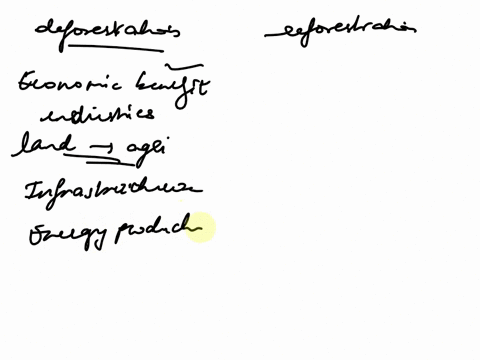 deforestation
reforestration
Economic benefit
industries
land → agri
Infrastructure
Energy produc